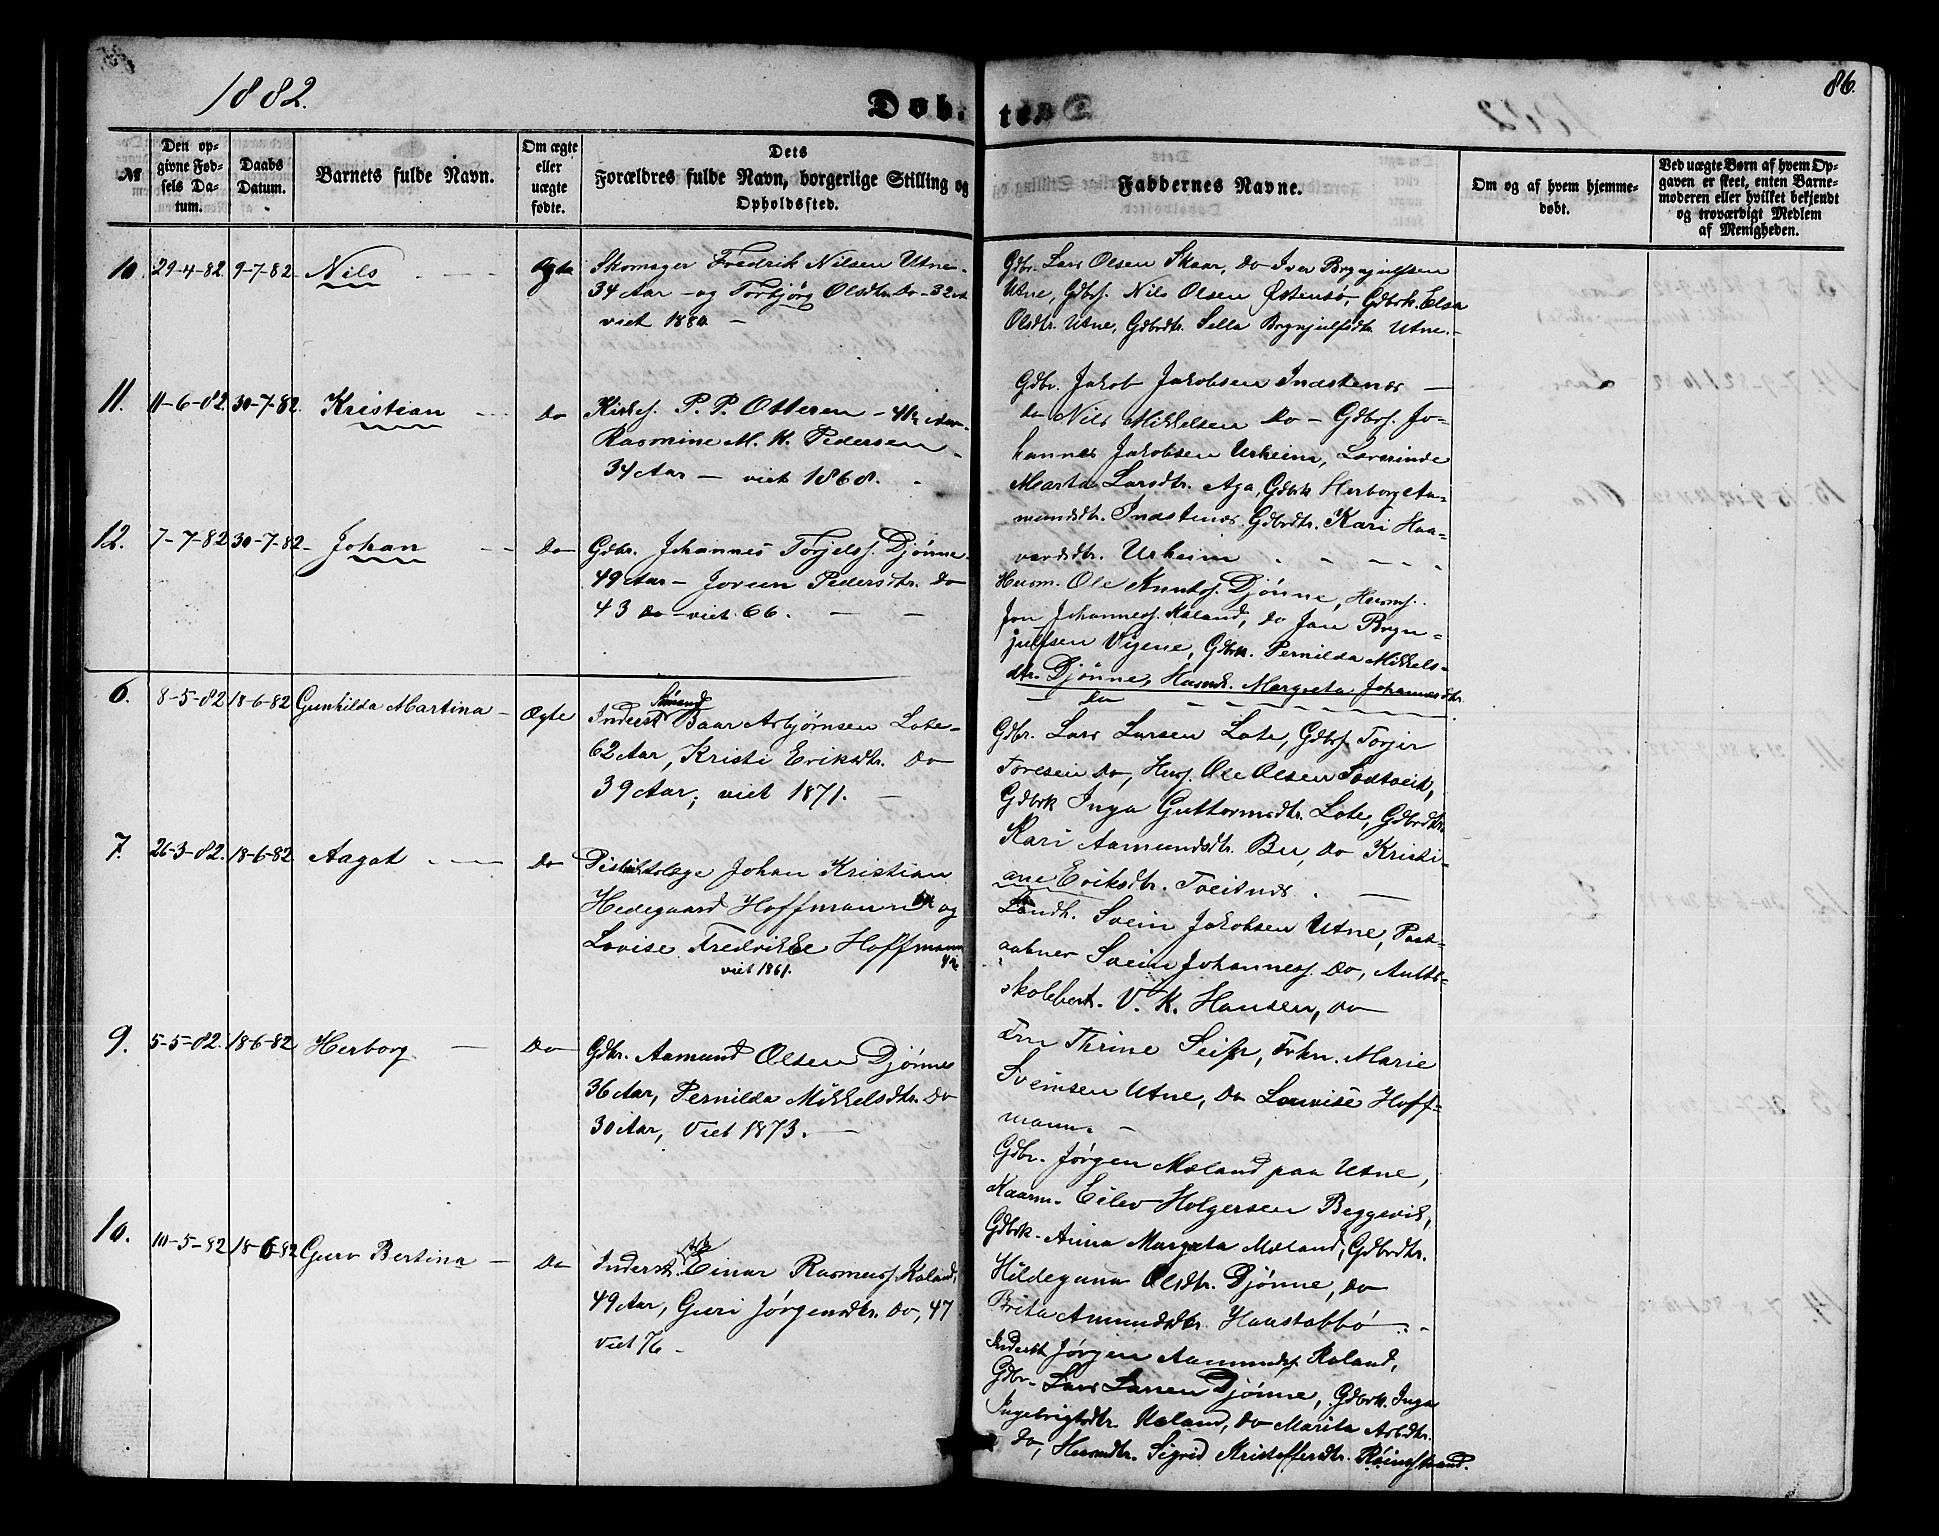 1882.
Døbte.
86.
№
Den opgivne Fødsels Datum.
Daabs Datum.
Barnets fulde Navn.
Om ægte eller uægte fødte.
Dets Forældres fulde Navn, borgerlige Stilling og Opholdssted.
Faddernes Navne.
Om og af hvem hjemmedøbt.
Ved uægte Børn af hvem Opgaven er skeet, enten Barnemoderen eller hvilket bekjendt og troværdigt Medlem af Menigheden.
10. 29-4-82 9-7-82. Nils Ægte
Skomager Fredrik Nilsen Utne
34 Aar – og Torbjørg Olsdtr. Do – 32
viet 1880 –
Gdbr. Lars Olsen Skaar, Do Iver Brynjulfsen
Utne, Gdbrs. Nils Olsen Østensø, Gdbrk. Elsa
Olsdtr. Utne, Gdbrdtr. Sella Brynjulfsdtr Utne.–
11. 11-6-82 30-7-82. Kristian Do
Kirkes. P. P. Otteren –
Rasmine M. K. Pedersen
34 Aar – viet 1868.
Gdbr. Jakob Jakobsen Indstenæs –
Do Nils Mikkelsen Do – Gdbrs. Jo-
hannes Jakobsen Urheim, Lærerinde
Marta Larsdtr. Aga, Gdbrk Herborg Aa-
mundsdtr. Indstenæs. Gdbrdtr. Kari Haa-
vardsdtr. Urheim
12. 7-7-82 30-7-82 Johan Do
Gdbr. Johannes Torjels. Djønne
49 Aar – Joren Pedersdtr. Do
43 Do – viet 66.
Husm. Ole Knuts. Djønne, Husms.
Jon Johanness. Røland, Do Jon Bryn-
julfsen Vigene, Gdbrk. Pernilda Mikkels-
dtr. Djønne, Husmdt. Margreta Johannesdtr.
Do
6. 8-5-82 18-6-82 Gunhilda Martina – Ægte
Inderst Baar Asbjørnsen Lote
62 Aar, Kristi Eriksdtr. Do
39 Aar; viet 1871. –
Gdbr. Lars Larsen Lote, Gdbrs. Torjir
Toresen Do, Huss. Ole Olsen Sadtveit,
Gdbrk Inga Guttormsdtr. Lote, Gdbrdtr.
Kari Aamundsdtr. Bu, Do Kristi-
ane Eriksdtr. Tveitnes. –
7. 26-3-82. 18-6-82 Aagot Do
Distriktslæge Johan Kristian
Hedegaard Hoffmann og
Lovise Fredrikke Hoffmann
viet 1861.
Landh. Svein Jakobsen Utne, Post-
aabner Svein Johanness. Do, Amts-
skolebest. V. K. Hansen, Do
Fru Thrine Seip, Frkn. Marie
Sveinsen Utne, Do Louise Hoff-
mann. –
9. 5-5-82. 18-6-82 Herborg – Do
Gdbr. Aamund Olsen Djønne
36 Aar, Pernilda Mikkelsdtr. Do
30 Aar, Viet 1873. –
Gdbr. Jørgen Mæland paa Utne,
Kaarm. Eilev Holgersen Beggevik,
Gdbrk. Anna Margreta Mæland, Gdbrdtr.
Hildegunn Olsdtr. Djønne, Do
Brita Amundsdtr. Haastabbø
10. 10-5-82 18-6-82 Guro Bertina – Do
Inderst. Einar Rasmuss. Røland,
49 Aar, Guri Jørgensdtr. Do, 47
Viet 76 –
Inderst Jørgen Aamunds. Røland,
Gdbr. Lars Larsen Djønne, Gdbrk. Inga
Ingebrigtsdtr. Mæland, Do Marita Asbdtr.
Do, Husmdtr. Sigrid Kristoffersdtr.